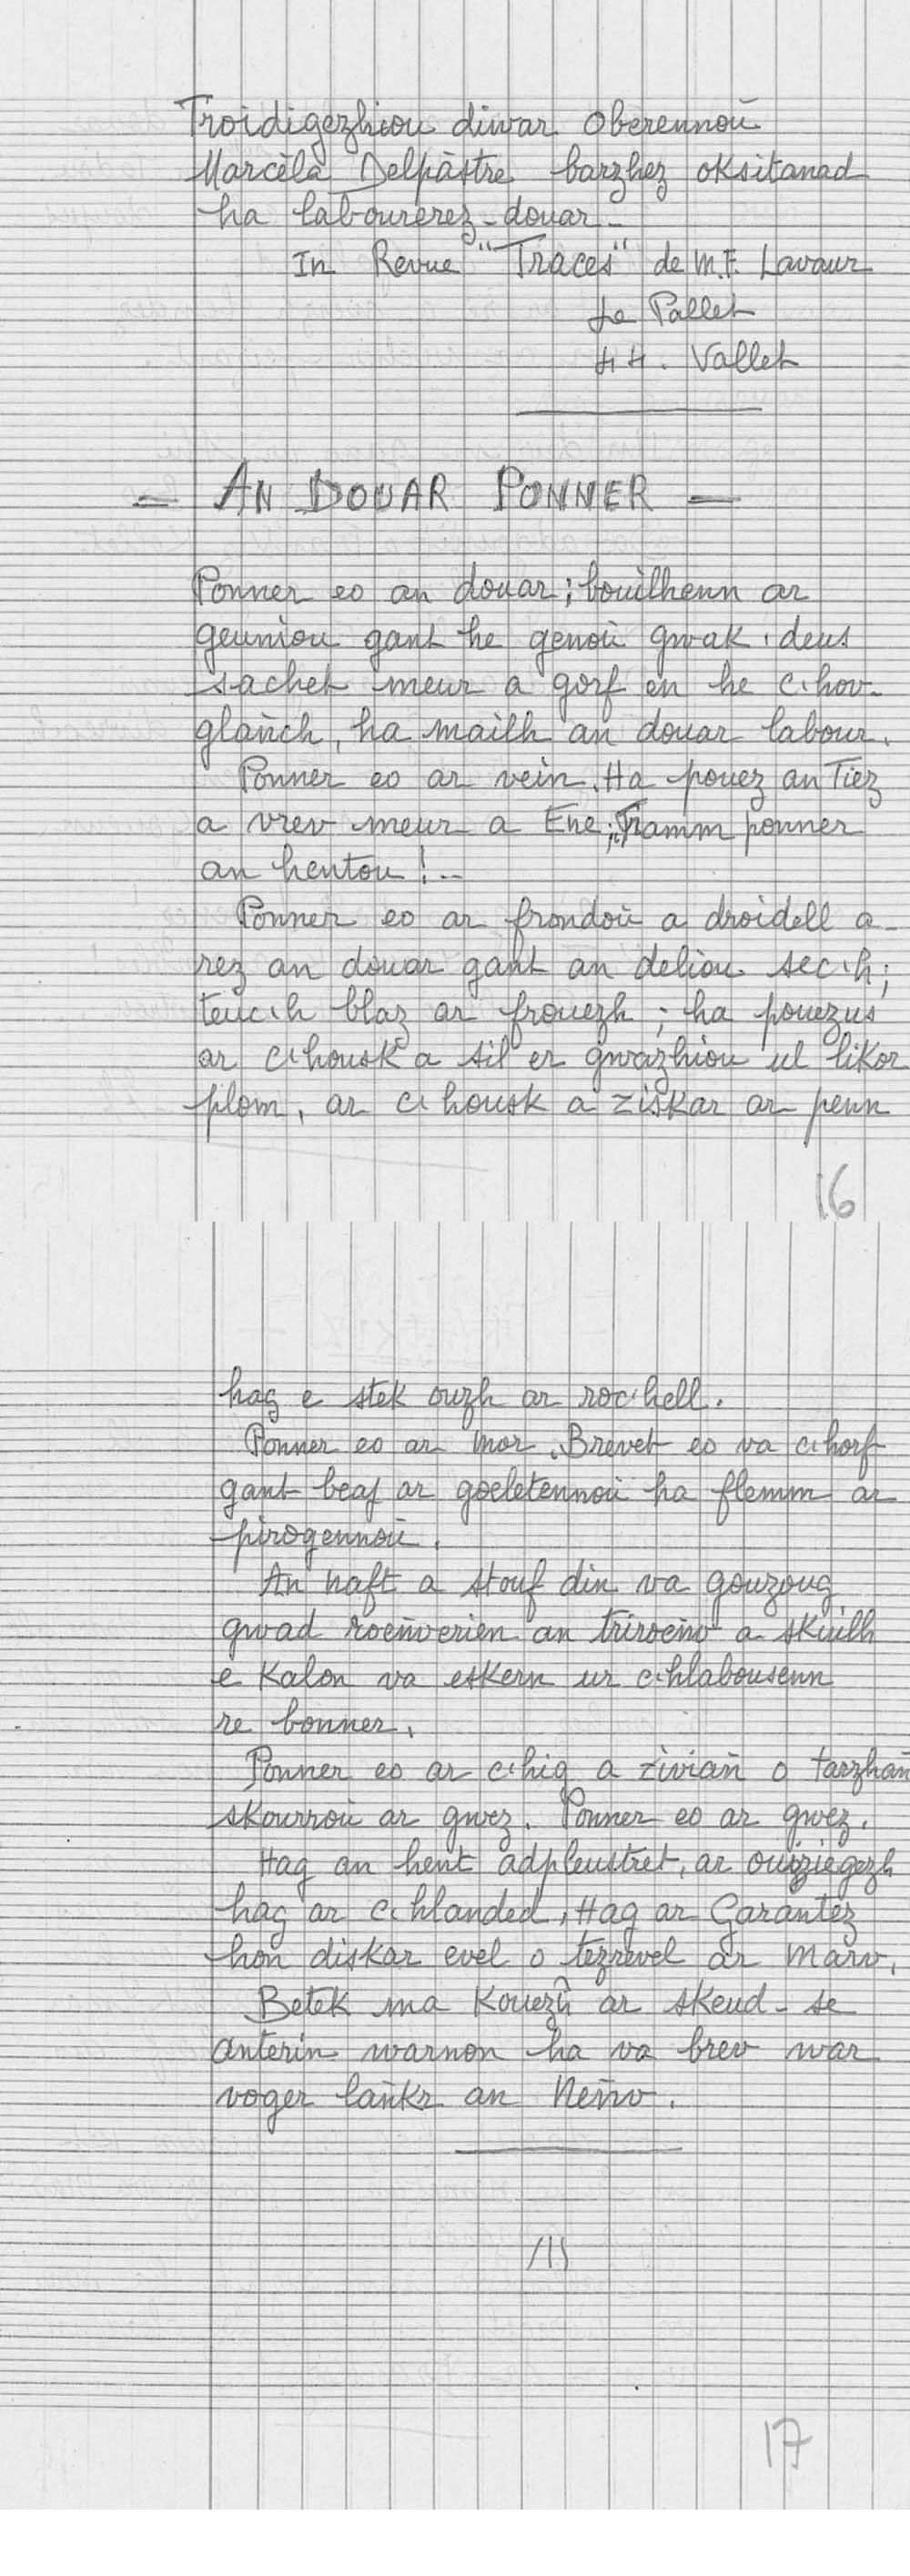 Troidigezhiou diwar Oberennoù
Marcèla Delpàstre barzhez oksitanad
ha labourerez-douar-
In Revue "Traces" de M.F. Lavaur
Le Pallet
44. Vallet
= AN DOUAR PONNER =
Ponner eo an douar ; bouilhenn ar
geuniou gant he genoù gwak deus
sachet meur a gorf en he c'hov-
glañch, ha mailh an douar labour.
Ponner eo ar vein. Ha pouez an Tiez
a vrev meur a Ene ; Framm ponner
an hentou !--
Ponner eo ar frondoù a droidell a-
rez an douar gant an deliou sec'h ;
teuc'h blaz ar frouezh ; ha pouezus
ar c'housk a sil er gwazhiou ul likor
plom, ar c'housk a ziskar ar penn
16
hag e stek ouzh ar roc'hell.
Ponner eo ar mor. Brevet eo va c'horf
gant beaj ar goeletennoù ha flemm ar
pirogennoù.
An naft a stouf din va gouzoug
gwad roeñverien an triroeñv a skuilh
e kalon va eskern ur c'hlabousenn
re bonner.
Ponner eo ar c'hig a zivian o tarzhañ
skourroù ar gwez. Ponner eo ar gwez.
Hag an hent adpleustret, ar ouiziegezh
hag ar c'hlanded, Hag ar Garantez
hon diskar evel o tezrevel ar Marv.
Betek ma kouezo ar skeud-se
anterin warnon ha va brev war
voger lañkr an Neñv.
17